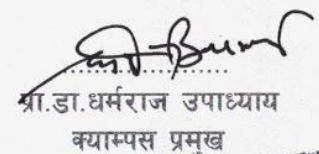 प्रा.डा.धर्मराज उपाध्याय
क्याम्पस प्रमुख